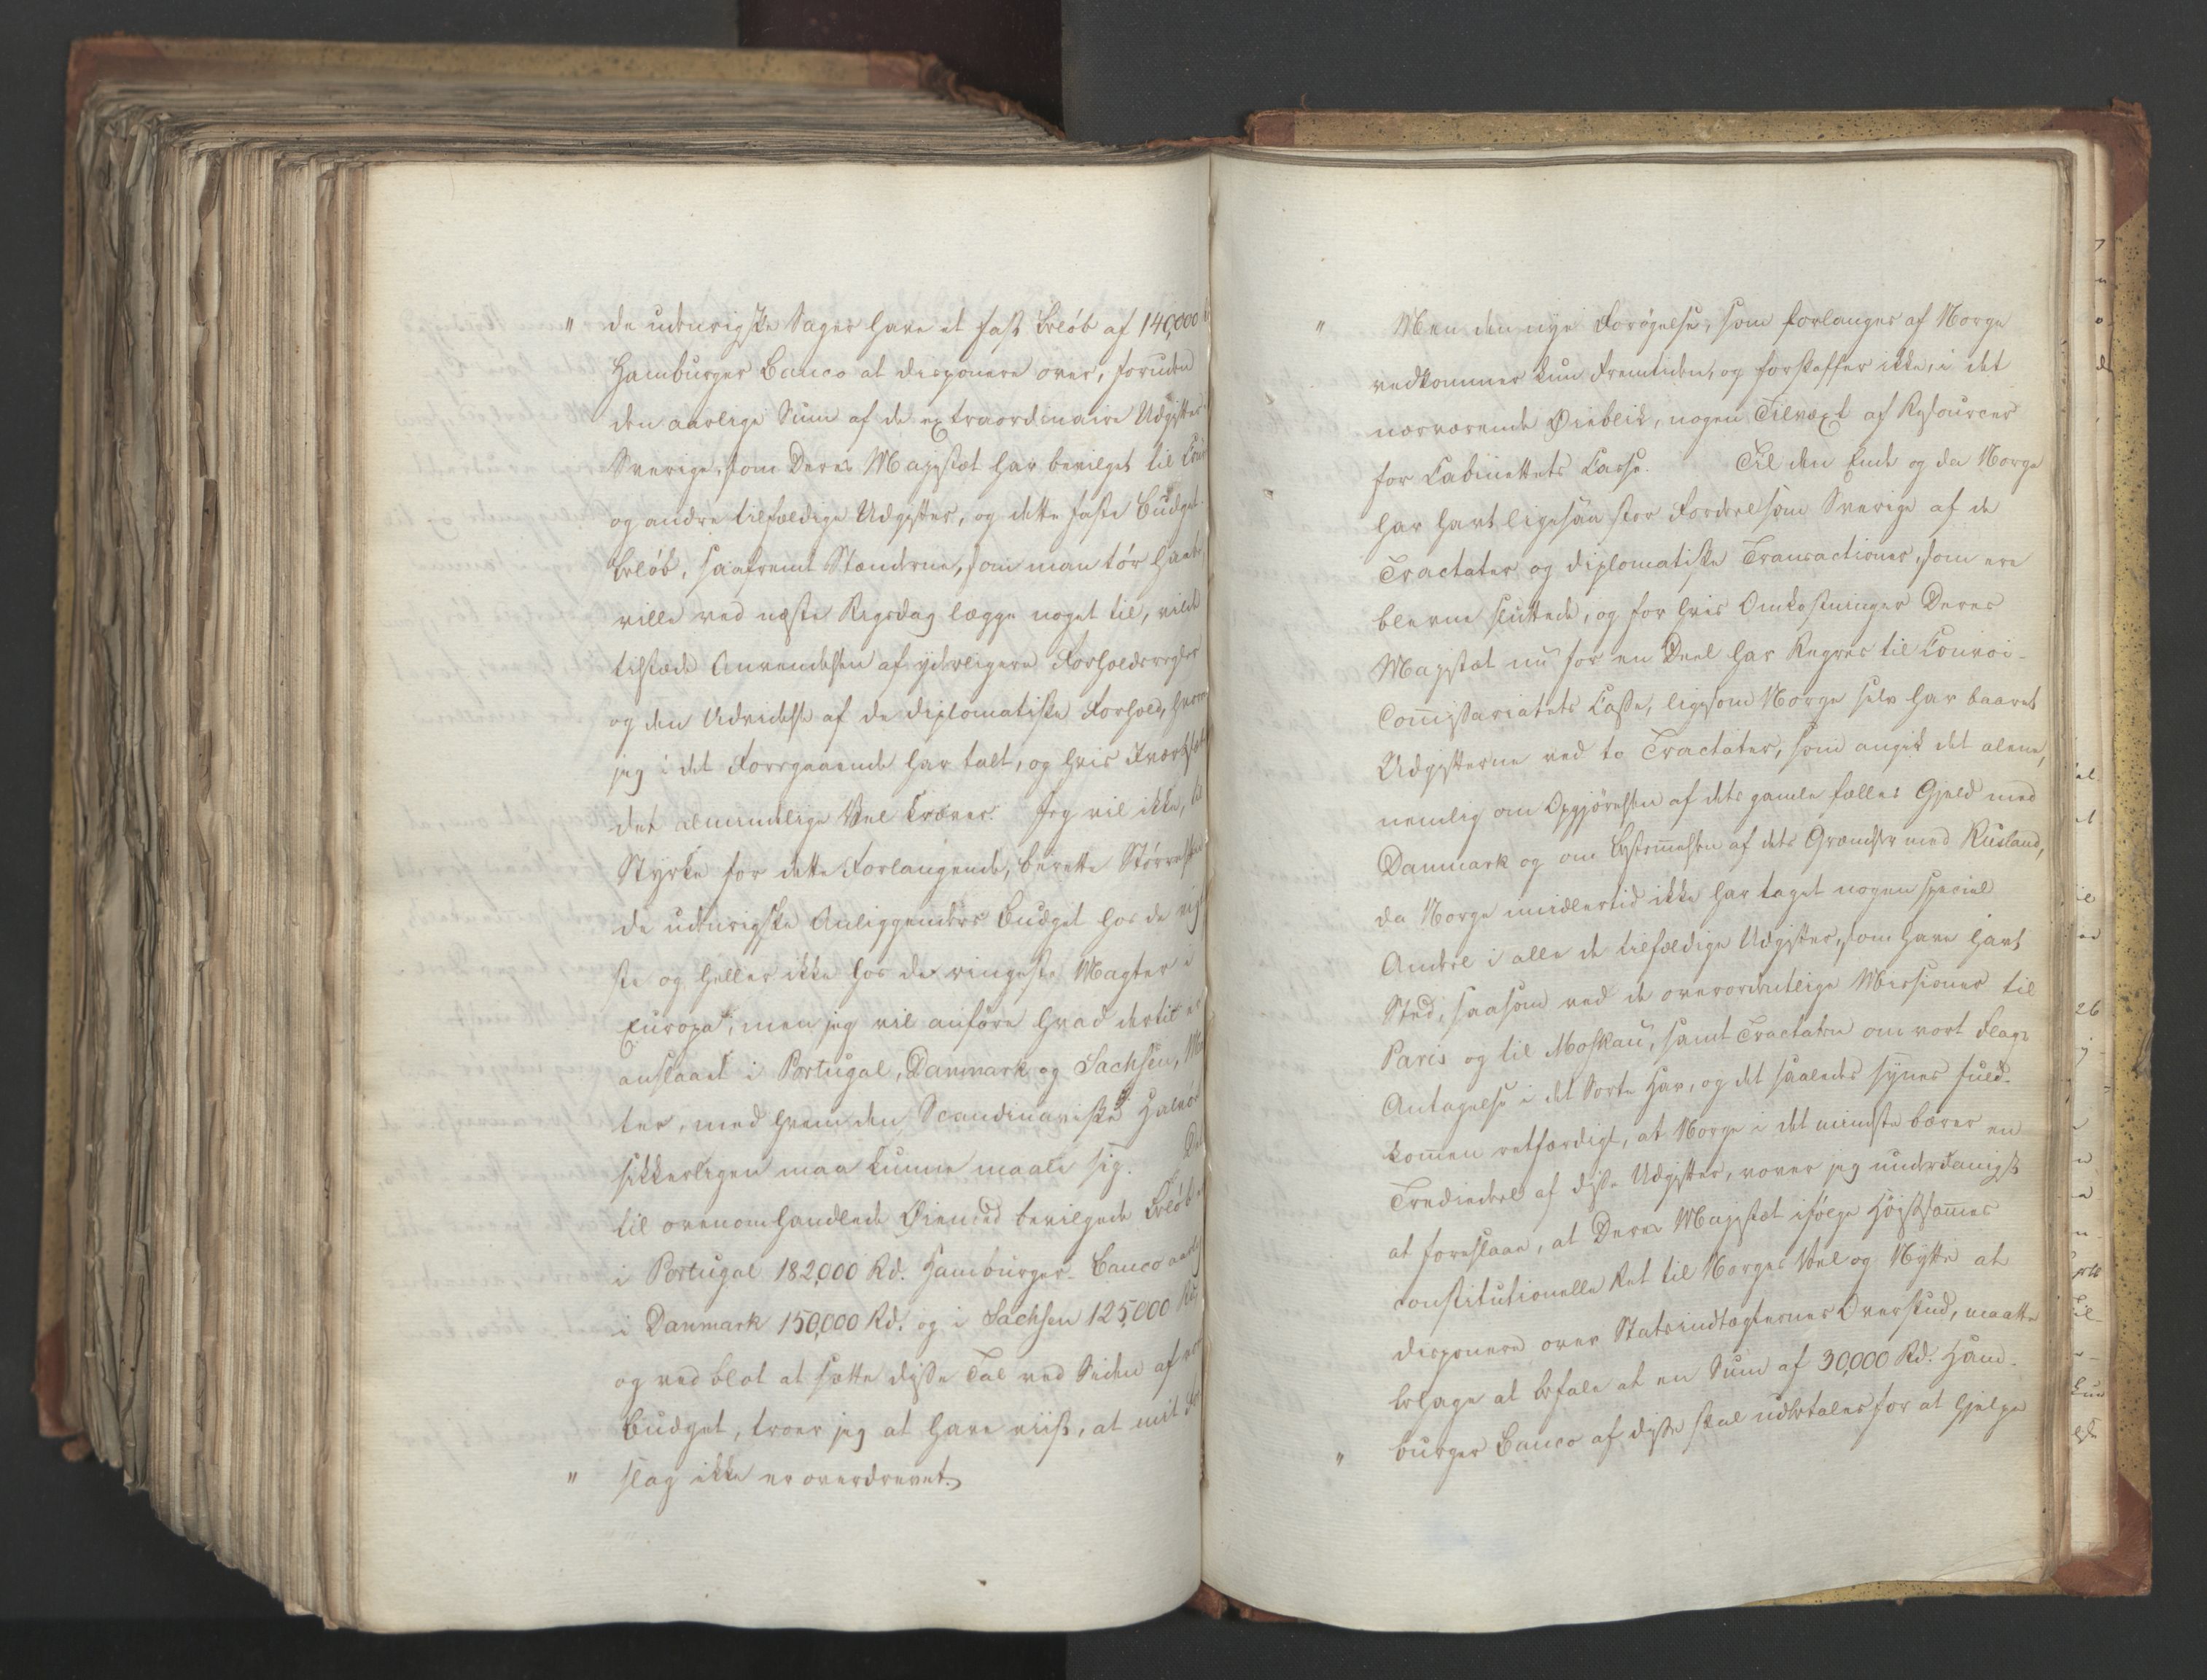 " de udenrigske Sager have et fast Beløb af 140,000
Hamburger Banco at disponere over, foruden
den aarlige Sum af de extraordinaire Udgifter
Sverige, som Deres Majestæt har bevilget til
og andre tilfældige Udgifter, og dette faste Budget-
beløb, saafremt Stænderne, som man tør haabe,
ville ved næste Rigsdag lægge noget til, vilde
tilstæde Anvendelsen af yderligere Forholdsregler
og den Udvidelse af de diplomatiske Forhold, hvorom
jeg i det Foregaaende har talt, og hvis Iværksæt
det almindelige Vel kræver. Jeg vil ikke, til
Styrke for dette Forlangende, berette Størrelsen
de udenrigske Anliggenders Budget hos de
ste og heller ikke hos de ringeste Magter i
Europa; men jeg vil anføre hvad dertil er
anslaaet i Portugal, Danmark og Sachsen,
ter, med hvem den Scandinaviske Halvø
sikkerligen maa kunne maale sig.
til ovenomhandlede Øiemed bevilgede Beløb
i Portugal 182,000 Rd. Hamburger-Banco
i Danmark 150,000 Rd. og i Sachsen 125,000
og ved blot at sætte disse Tal ved Siden af
Budget, troer jeg at have viist, at mit
" slag ikke er overdrevet.
" Men den nye Forøgelse, som forlanges af Norge
vedkommer kun Fremtiden, og forskaffer ikke, i det
nærværende Øieblik, nogen Tilvæxt af Resourcer
for Cabinettets Casse. Til den Ende og da Norge
har havt ligesaa stor Fordeel som Sverige af de
Tractater og diplomatiske Transactioner, som ere
blevne sluttede, og for hvis Omkostninger Deres
Majestæt nu for en Deel har Regres til Convoi-
Commissariatets Casse, ligesom Norge selv har baaret
Udgifterne ved to Tractater, som angik det alene,
nemlig om Opgjørelsen af dets gamle fælles Gjeld med
Danmark og om Bestemmelsen af dets Grændser med Rusland,
da Norge imidlertid ikke har taget nogen special
Andeel i alle de tilfældige Udgifter, som have havt
Sted, saasom ved de overordentlige Missioner til
Paris og til Moskau, samt Tractaten om vort Flags
Antagelse i det Sorte Hav, og det saaledes synes fuld-
kommen retfærdigt, at Norge i det mindste bærer en
Trediedeel af disse Udgifter, vover jeg underdanigst
at foreslaae, at Deres Majestæt ifølge Høistsammes
constitutionelle Ret til Norges Vel og Nytte at
disponere over Statsindtægternes Overskud, maatte
behage at befale at en Sum af 30,000 Rd. Ham-
" burger Banco af disse skal udbetales for at hjelpe